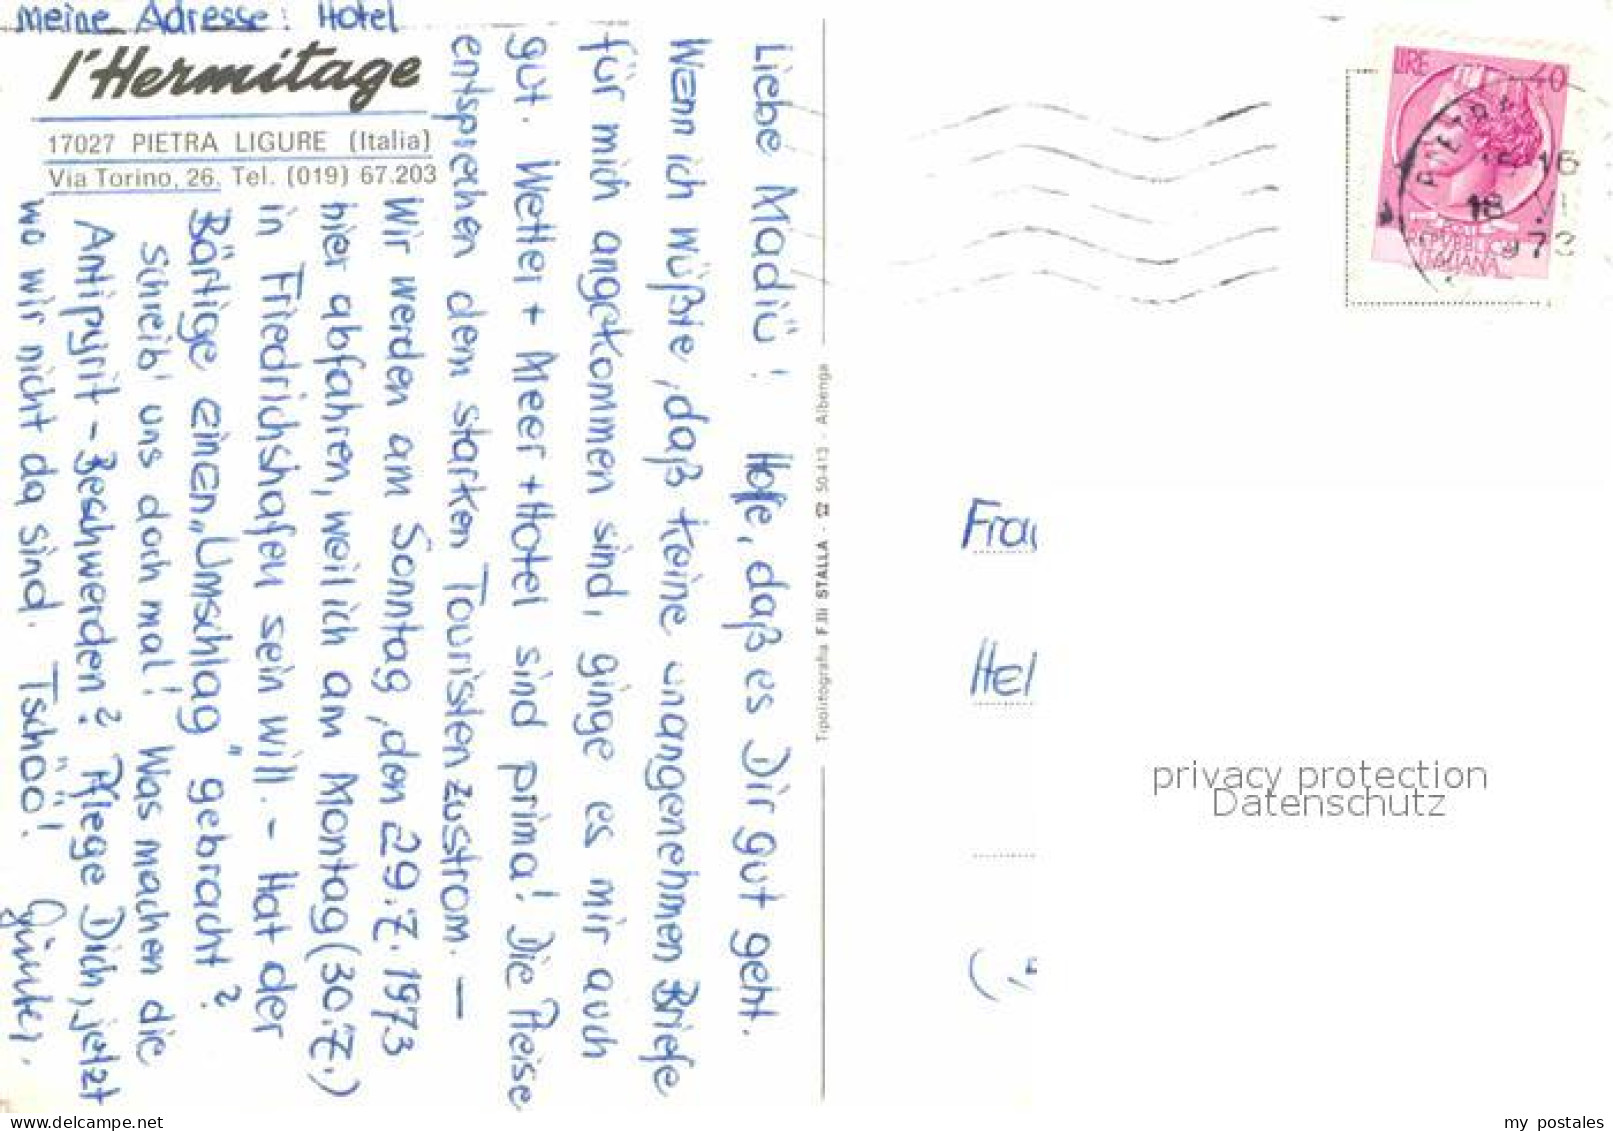 meine Adresse: Hotel
l'Hermitage
17027 PIETRA LIGURE (Italia)
Via Torino, 26. Tel. (019) 67.203
Liebe Madiü! Hoffe, daß es Dir gut geht.
Wenn ich wüßte, daß keine unangenehmen Briefe
für mich angekommen sind, ginge es mir auch
gut. Wetter + Meer + Hotel sind prima! Die Preise
entsprechen dem starken Touristenzustrom. —
Wir werden am Sonntag, den 29.7.1973
hier abfahren, weil ich am Montag (30.7.)
in Friedrichshafen sein will. - Hat der
Bärtige einen „Umschlag" gebracht?
Schreib' uns doch mal! Was machen die
Antipyrit-Beschwerden? Pflege Dich, jetzt
wo wir nicht da sind. Tschöö! Günter.
Tipolitografia F.lli STALLA - ☎ 50-413 - Albenga
LIRE 40
POSTE
REPVBBLICA
ITALIANA
PIETRA
15-16
18 VI
973
Frau
Hel
privacy protection
Datenschutz
my_postales